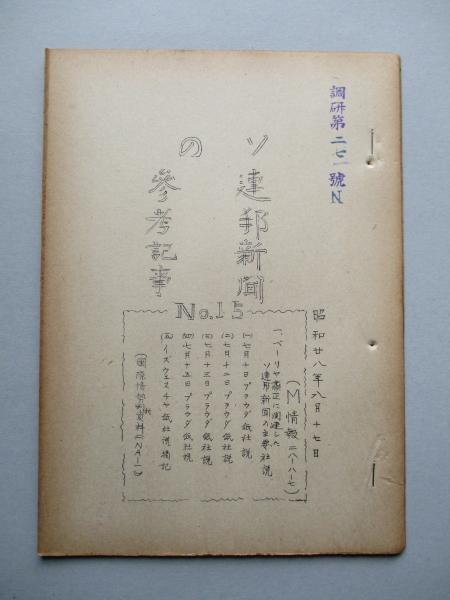 調研第二七一號N
ソ連邦新聞
の参考記事
No.15
昭和廿八年八月十七日
(M情報 二八-八-七)
一、ベーリヤ粛正に関連した
ソ連邦新聞の主要社説
(一)七月十日プラウダ紙社説
(二)七月十二日プラウダ紙社説
(三)七月十三日プラウダ紙社説
(四)七月十五日プラウダ紙社説
(五)イズヴェスチヤ紙社説摘記